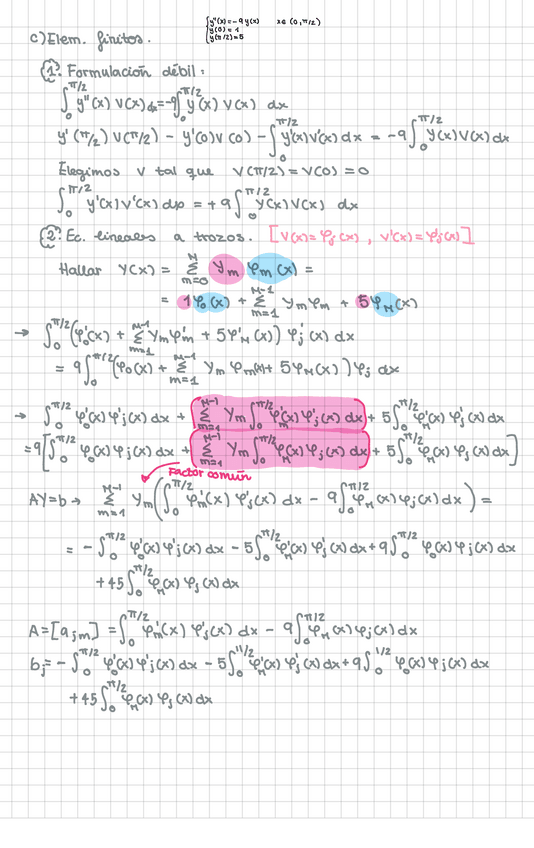 {y''(x) = -9y(x)   x∈(0,π/2)
y(0) = 1
y(π/2) = 5
c) Elem. finitos.
1º Formulación débil:
∫₀^{π/2} y''(x) v(x) dx = -9∫₀^{π/2} y(x) v(x) dx
y'(π/2) v(π/2) - y'(0) v(0) - ∫₀^{π/2} y'(x) v'(x) dx = -9∫₀^{π/2} y(x) v(x) dx
Elegimos v tal que v(π/2) = v(0) = 0
∫₀^{π/2} y'(x) v'(x) dx = +9∫₀^{π/2} y(x) v(x) dx
2º Ec. lineales a trozos. [v(x) = φj(x), v'(x) = φ'j(x)]
Hallar y(x) = Σ_{m=0}^{M} Ym φm(x) =
= 1φ₀(x) + Σ_{m=1}^{M-1} Ym φm + 5φM(x)
→ ∫₀^{π/2} (φ'₀(x) + Σ_{m=1}^{M-1} Ym φ'm + 5φ'M(x)) φ'j(x) dx
= 9∫₀^{π/2} (φ₀(x) + Σ_{m=1}^{M-1} Ym φm(x) + 5φM(x)) φj dx
→ ∫₀^{π/2} φ'₀(x) φ'j(x) dx + Σ_{m=1}^{M-1} Ym ∫₀^{π/2} φ'm(x) φ'j(x) dx + 5∫₀^{π/2} φ'M(x) φ'j(x) dx
= 9[∫₀^{π/2} φ₀(x) φj(x) dx + Σ_{m=1}^{M-1} Ym ∫₀^{π/2} φm(x) φj(x) dx + 5∫₀^{π/2} φM(x) φj(x) dx]
Factor común
AY=b → Σ_{m=1}^{M-1} Ym (∫₀^{π/2} φ'm(x) φ'j(x) dx - 9∫₀^{π/2} φm(x) φj(x) dx) =
= -∫₀^{π/2} φ'₀(x) φ'j(x) dx - 5∫₀^{π/2} φ'M(x) φ'j(x) dx + 9∫₀^{π/2} φ₀(x) φj(x) dx
+45∫₀^{π/2} φM(x) φj(x) dx
A=[ajm] = ∫₀^{π/2} φ'm(x) φ'j(x) dx - 9∫₀^{π/2} φm(x) φj(x) dx
bj = -∫₀^{π/2} φ'₀(x) φ'j(x) dx - 5∫₀^{π/2} φ'M(x) φ'j(x) dx + 9∫₀^{π/2} φ₀(x) φj(x) dx
+45∫₀^{π/2} φM(x) φj(x) dx